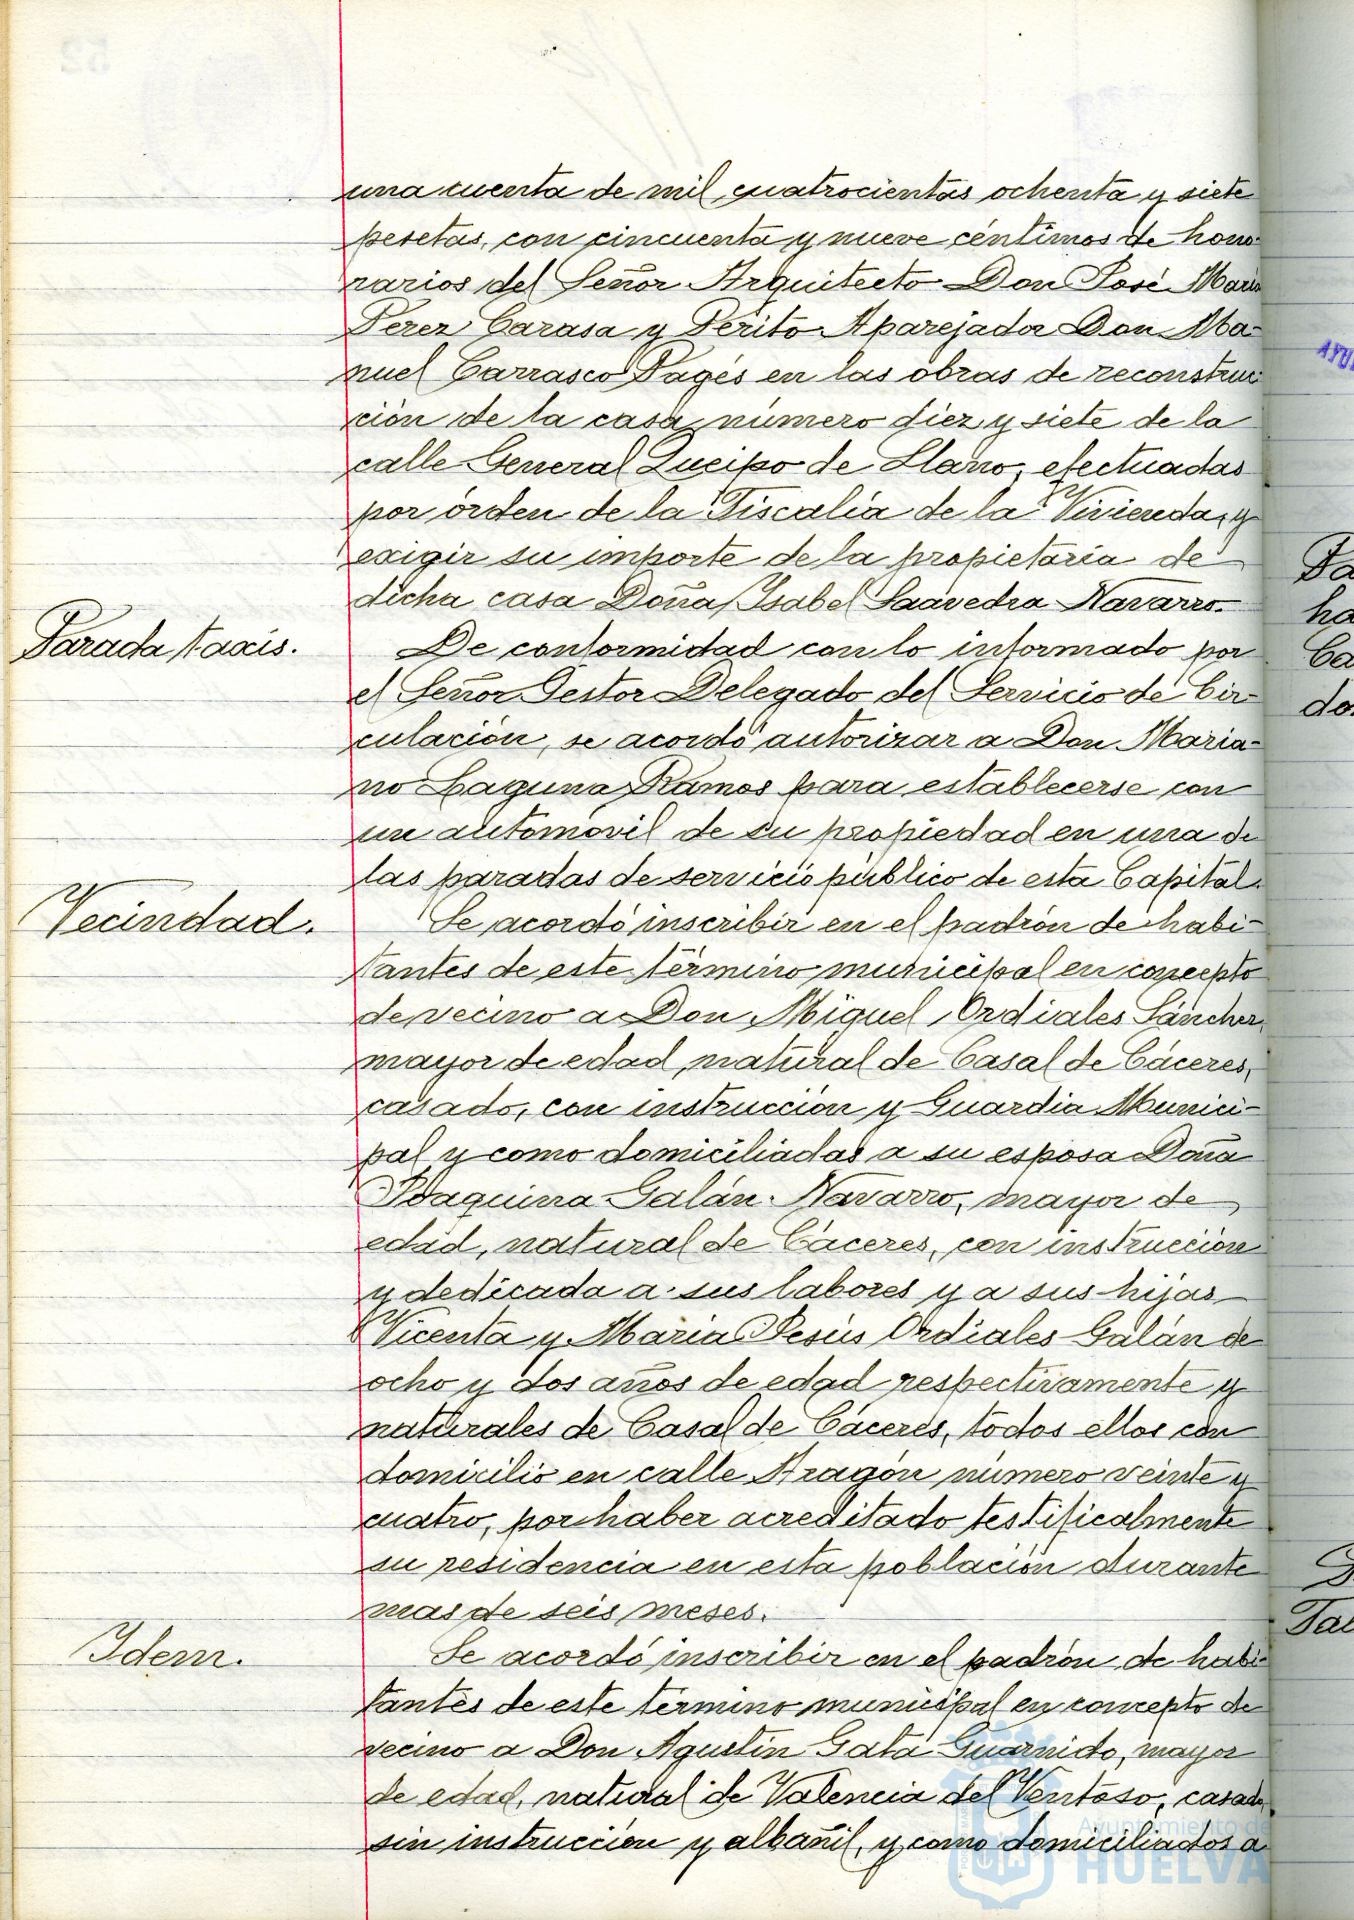 una cuenta de mil cuatrocientas ochenta y siete
pesetas, con cincuenta y nueve céntimos de hono-
rarios del Señor Arquitecto Don José María
Pérez Carasa y Perito Aparejador Don Ma-
nuel Carrasco Pagés en las obras de reconstruc-
ción de la casa número diez y siete de la
calle General Queipo de Llano, efectuadas
por órden de la Fiscalía de la Viviereda, y
exigir su importe de la propietaria de
dicha casa Doña Ysabel Saavedra Navarro.
Parada taxis.
De conformidad con lo informado por
el Señor Gestor Delegado del Servicio de Cir-
culación, se acordó autorizar a Don Maria-
no Laguna Ramos para establecerse con
un automóvil de su propiedad en una de
las paradas de servicio público de esta Capital.
Vecindad.
Se acordó inscribir en el padrón de habi-
tantes de este término municipal en concepto
de vecino a Don Miguel Ordiales Sánchez,
mayor de edad, natural de Casal de Cáceres,
casado, con instrucción y Guardia Munici-
pal y como domiciliadas a su esposa Doña
Joaquina Galán Navarro, mayor de
edad, natural de Cáceres, con instrucción
y dedicada a sus labores y a sus hijas
Vicenta y María Jesús Ordiales Galán de
ocho y dos años de edad respectivamente y
naturales de Casal de Cáceres, todos ellos con
domicilio en calle Aragón número veinte y
cuatro, por haber acreditado testificalmente
su residencia en esta población durante
mas de seis meses.
Idem.
Se acordó inscribir en el padrón de habi-
tantes de este término municipal en concepto de
vecino a Don Agustín Gata Guarnido, mayor
de edad, natural de Valencia del Ventoso, casado,
sin instrucción y albañil, y como domiciliados a
Ayuntamiento de
HUELVA